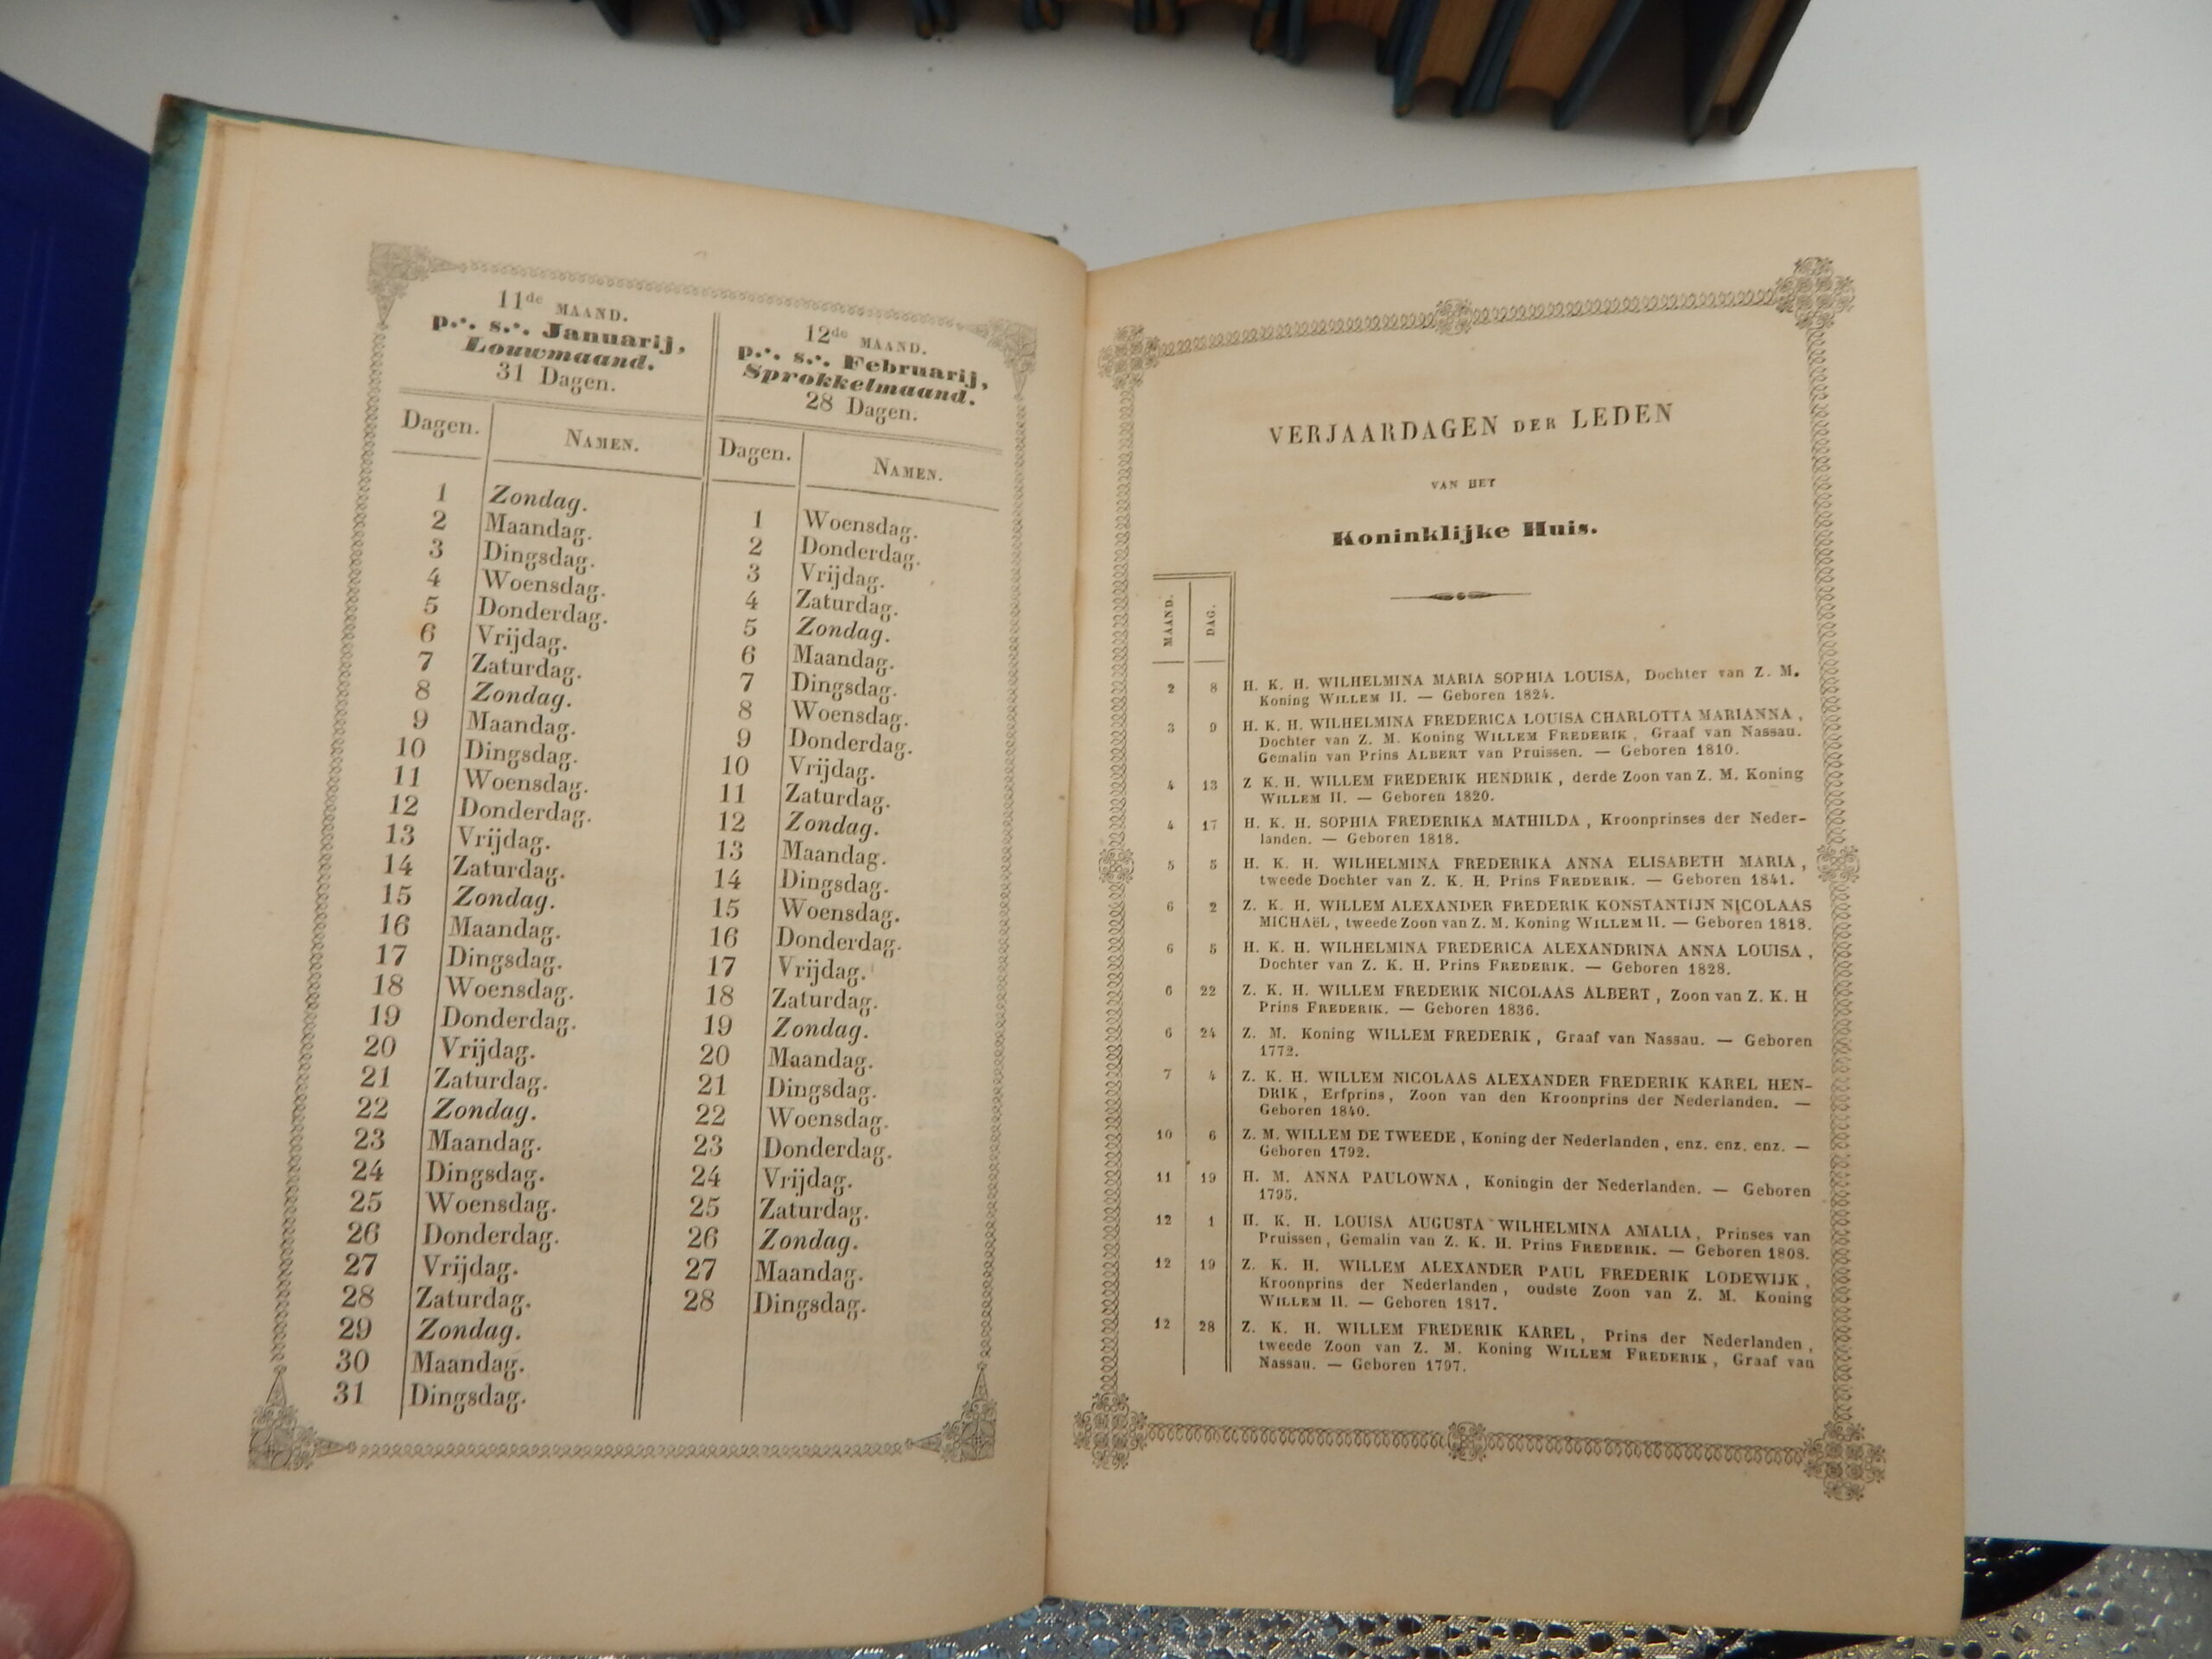 11de MAAND.
p.·. s.·. Januarij,
Louwmaand.
31 Dagen.
Dagen. NAMEN.
1 Zondag.
2 Maandag.
3 Dingsdag.
4 Woensdag.
5 Donderdag.
6 Vrijdag.
7 Zaturdag.
8 Zondag.
9 Maandag.
10 Dingsdag.
11 Woensdag.
12 Donderdag.
13 Vrijdag.
14 Zaturdag.
15 Zondag.
16 Maandag.
17 Dingsdag.
18 Woensdag.
19 Donderdag.
20 Vrijdag.
21 Zaturdag.
22 Zondag.
23 Maandag.
24 Dingsdag.
25 Woensdag.
26 Donderdag.
27 Vrijdag.
28 Zaturdag.
29 Zondag.
30 Maandag.
31 Dingsdag.
12de MAAND.
p.·. s.·. Februarij,
Sprokkelmaand.
28 Dagen.
Dagen. NAMEN.
1 Woensdag.
2 Donderdag.
3 Vrijdag.
4 Zaturdag.
5 Zondag.
6 Maandag.
7 Dingsdag.
8 Woensdag.
9 Donderdag.
10 Vrijdag.
11 Zaturdag.
12 Zondag.
13 Maandag.
14 Dingsdag.
15 Woensdag.
16 Donderdag.
17 Vrijdag.
18 Zaturdag.
19 Zondag.
20 Maandag.
21 Dingsdag.
22 Woensdag.
23 Donderdag.
24 Vrijdag.
25 Zaturdag.
26 Zondag.
27 Maandag.
28 Dingsdag.
VERJAARDAGEN DER LEDEN
VAN HET
Koninklijke Huis.
MAAND. DAG.
2 8 H. K. H. WILHELMINA MARIA SOPHIA LOUISA, Dochter van Z. M.
Koning WILLEM II. — Geboren 1824.
3 9 H. K. H. WILHELMINA FREDERICA LOUISA CHARLOTTA MARIANNA,
Dochter van Z. M. Koning WILLEM FREDERIK, Graaf van Nassau.
Gemalin van Prins ALBERT van Pruissen. — Geboren 1810.
4 13 Z K. H. WILLEM FREDERIK HENDRIK, derde Zoon van Z. M. Koning
WILLEM II. — Geboren 1820.
4 17 H. K. H. SOPHIA FREDERIKA MATHILDA, Kroonprinses der Neder-
landen. — Geboren 1818.
5 5 H. K. H. WILHELMINA FREDERIKA ANNA ELISABETH MARIA,
tweede Dochter van Z. K. H. Prins FREDERIK. — Geboren 1841.
6 2 Z. K. H. WILLEM ALEXANDER FREDERIK KONSTANTIJN NICOLAAS
MICHAëL, tweede Zoon van Z. M. Koning WILLEM II. — Geboren 1818.
6 5 H. K. H. WILHELMINA FREDERICA ALEXANDRINA ANNA LOUISA,
Dochter van Z. K. H. Prins FREDERIK. — Geboren 1828.
6 22 Z. K. H. WILLEM FREDERIK NICOLAAS ALBERT, Zoon van Z. K. H
Prins FREDERIK. — Geboren 1836.
6 24 Z. M. Koning WILLEM FREDERIK, Graaf van Nassau. — Geboren
1772.
7 4 Z. K. H. WILLEM NICOLAAS ALEXANDER FREDERIK KAREL HEN-
DRIK, Erfprins, Zoon van den Kroonprins der Nederlanden. —
Geboren 1840.
10 6 Z. M. WILLEM DE TWEEDE, Koning der Nederlanden, enz. enz. enz. —
Geboren 1792.
11 19 H. M. ANNA PAULOWNA, Koningin der Nederlanden. — Geboren
1795.
12 1 H. K. H. LOUISA AUGUSTA WILHELMINA AMALIA, Prinses van
Pruissen, Gemalin van Z. K. H. Prins FREDERIK. — Geboren 1808.
12 19 Z. K. H. WILLEM ALEXANDER PAUL FREDERIK LODEWIJK,
Kroonprins der Nederlanden, oudste Zoon van Z. M. Koning
WILLEM II. — Geboren 1817.
12 28 Z. K. H. WILLEM FREDERIK KAREL, Prins der Nederlanden,
tweede Zoon van Z. M. Koning WILLEM FREDERIK, Graaf van
Nassau. — Geboren 1797.